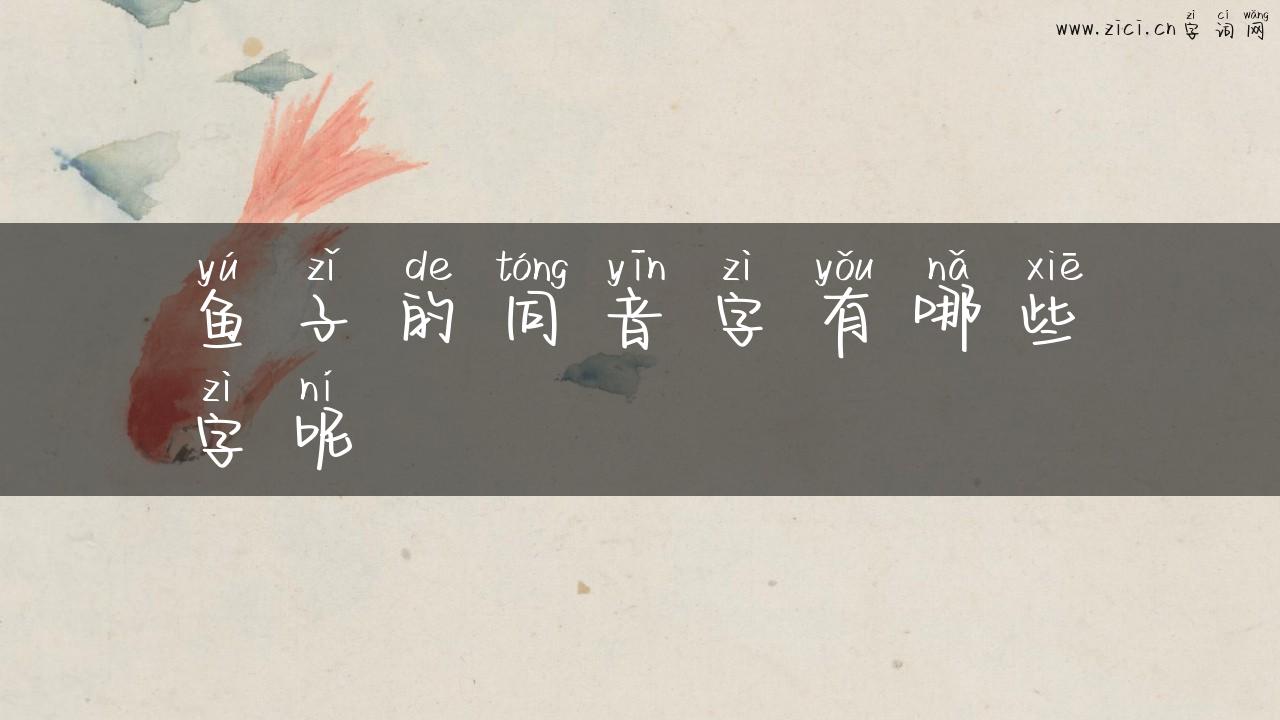 www.zici.cn zì cí wǎng
字词网
yú zǐ de tóng yīn zì yǒu nǎ xiē
鱼子的同音字有哪些
zì ní
字呢